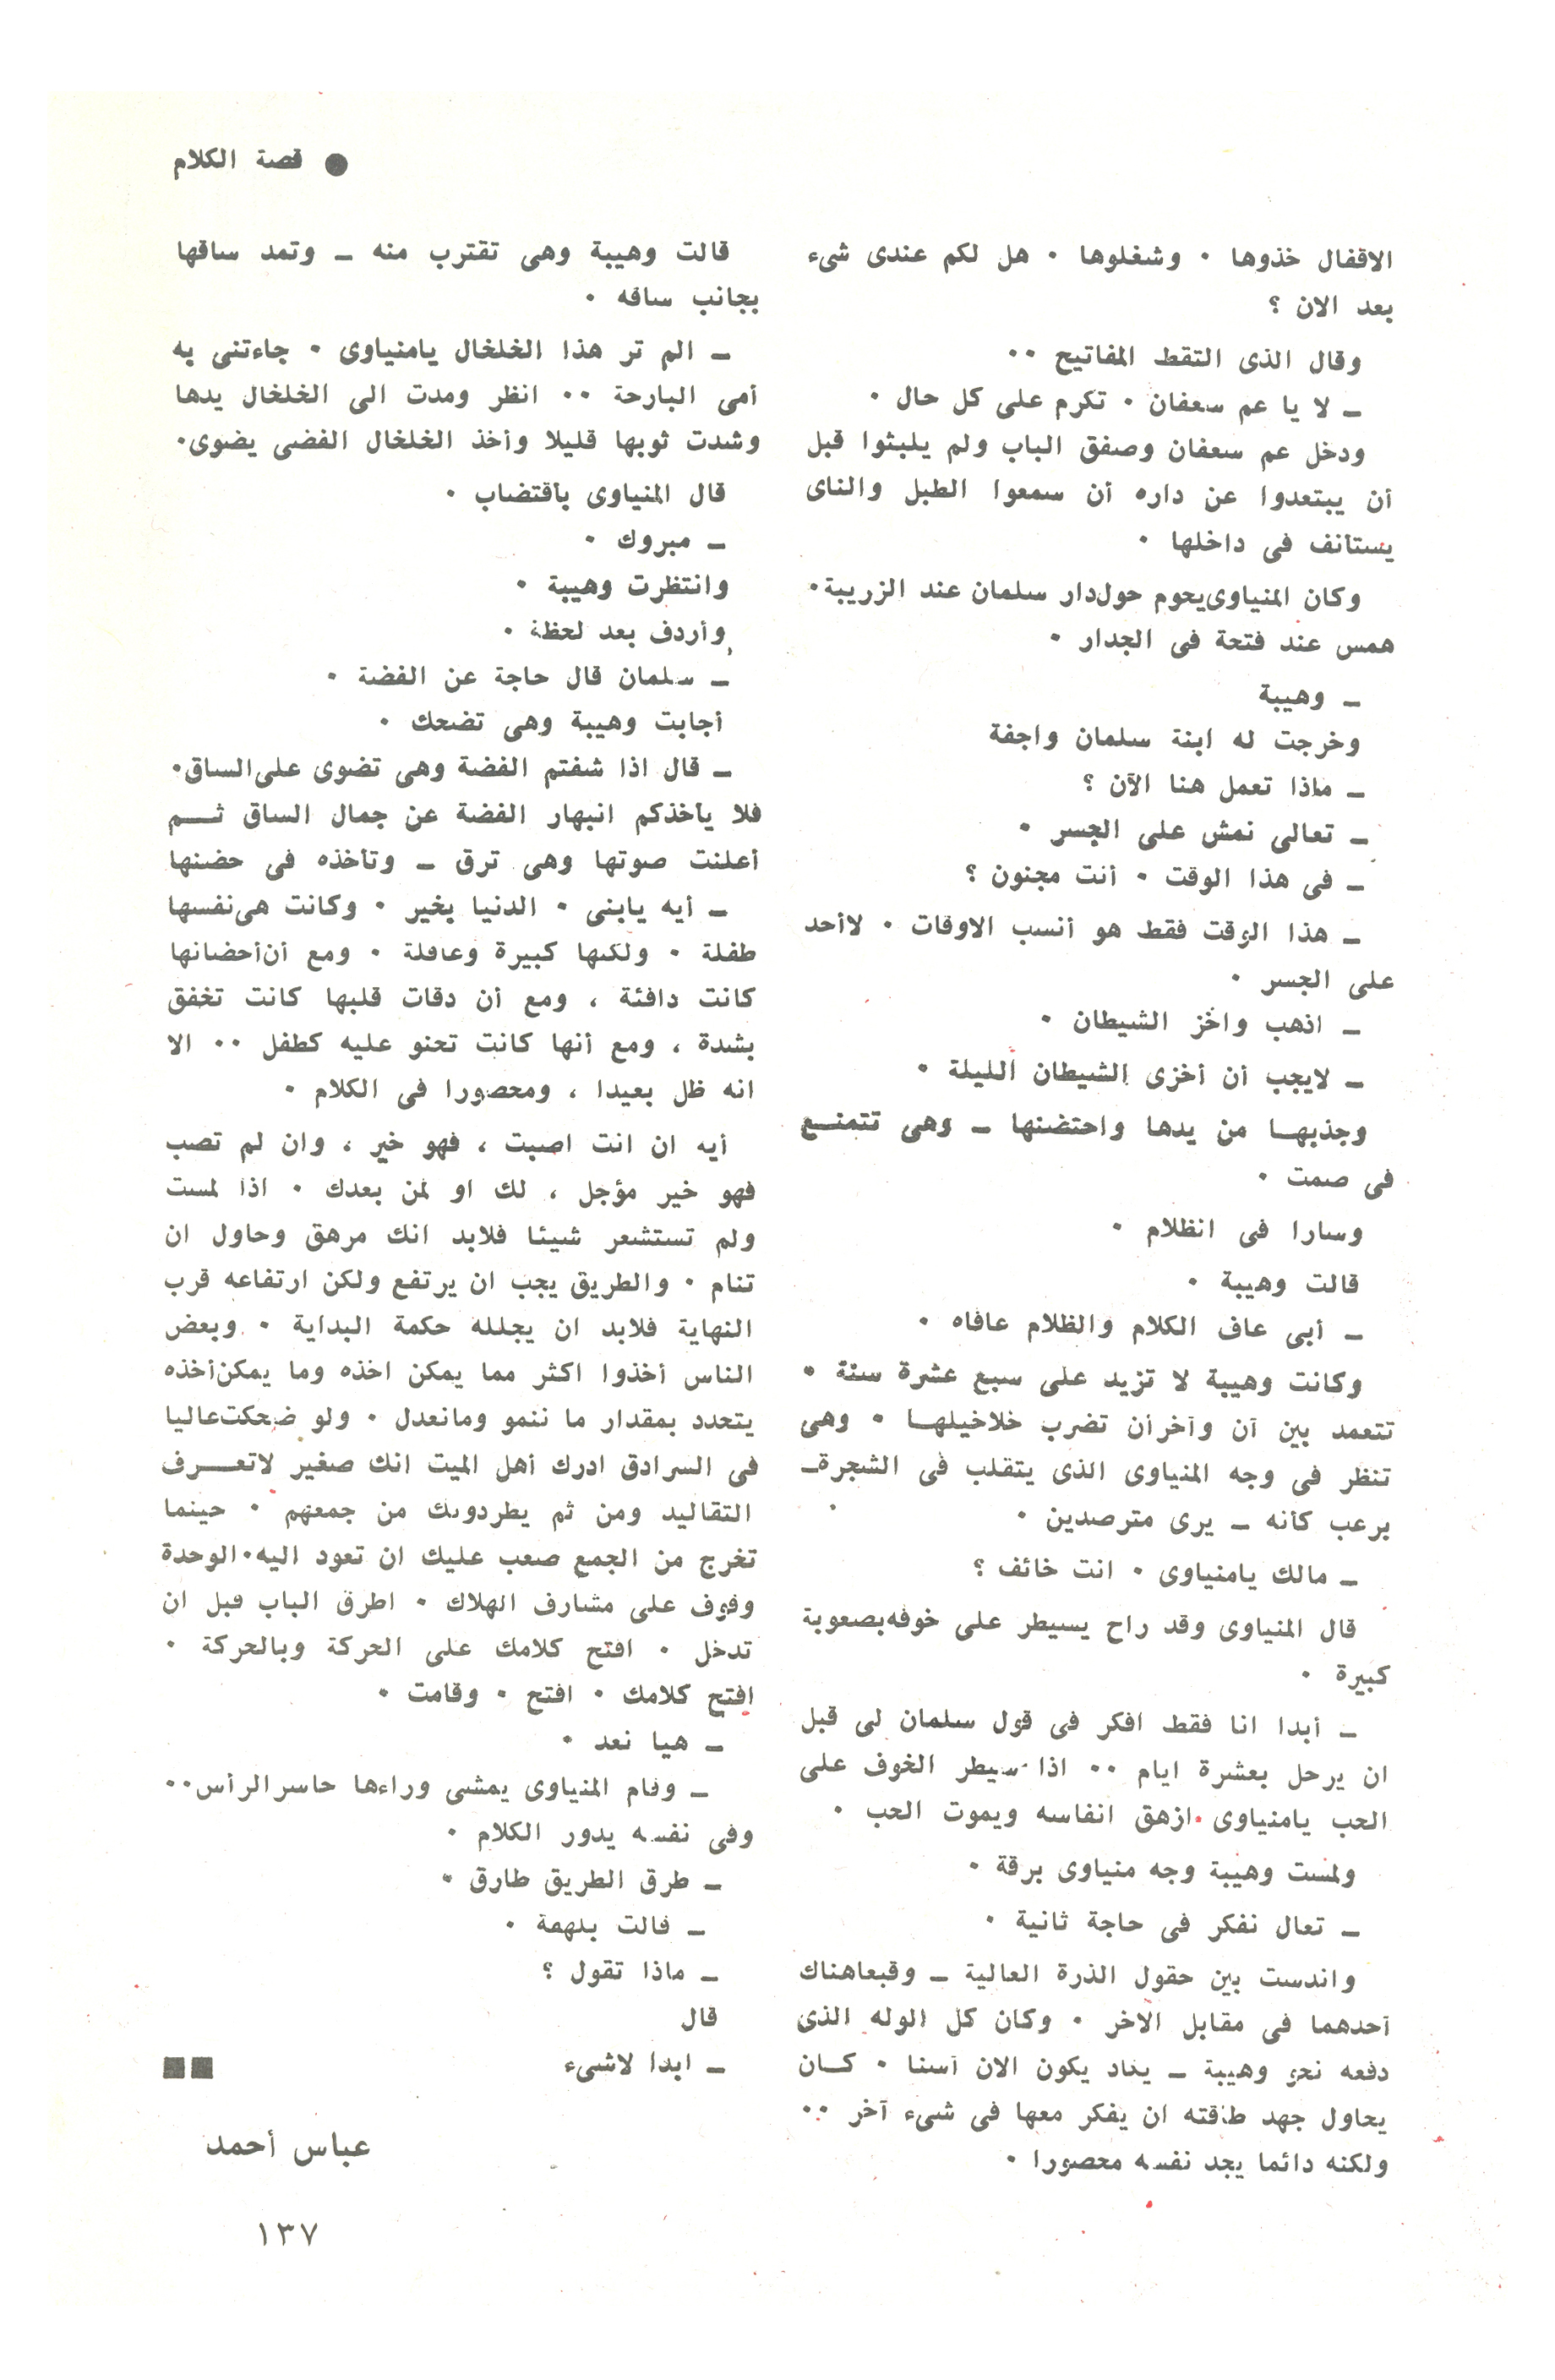 ● قصة الكلام
الاقفال خذوها ٠ وشغلوها ٠ هل لكم عندى شىء
بعد الان ؟
وقال الذى التقط المفاتيح ٠٠
ـ لا يا عم سعفان ٠ تكرم على كل حال ٠
ودخل عم سعفان وصفق الباب ولم يلبثوا قبل
أن يبتعدوا عن داره أن سمعوا الطبل والناى
يستانف فى داخلها ٠
وكان المنياوى يحوم حول دار سلمان عند الزريبة ٠
همس عند فتحة فى الجدار ٠
ـ وهيبة
وخرجت له ابنة سلمان واجفة
ـ ماذا تعمل هنا الآن ؟
ـ تعالى نمش على الجسر ٠
ـ فى هذا الوقت ٠ أنت مجنون ؟
ـ هذا الوقت فقط هو أنسب الاوقات ٠ لاأحد
على الجسر ٠
ـ اذهب واخز الشيطان ٠
ـ لايجب أن أخزى الشيطان الليلة ٠
وجذبهـا من يدها واحتضنها ـ وهى تتمنـع
فى صمت ٠
وسارا فى انظلام ٠
قالت وهيبة ٠
ـ أبى عاف الكلام والظلام عافاه ٠
وكانت وهيبة لا تزيد على سبع عشرة سنة ٠
تتعمد بين آن وآخر أن تضرب خلاخيلهـا ٠ وهى
تنظر فى وجه المنياوى الذى يتقلب فى الشجرة ـ
برعب كأنه ـ يرى مترصدين ٠
ـ مالك يامنياوى ٠ انت خائف ؟
قال المنياوى وقد راح يسيطر على خوفه بصعوبة
كبيرة ٠
ـ أبدا انا فقط افكر فى قول سلمان لى قبل
ان يرحل بعشرة ايام ٠٠ اذا سيطر الخوف على
الحب يامنياوى ٠ ازهق انفاسه ويموت الحب ٠
ولمست وهيبة وجه منياوى برقة ٠
ـ تعال نفكر فى حاجة ثانية ٠
واندست بين حقول الذرة العالية ـ وقبعاهناك
أحدهما فى مقابل الآخر ٠ وكان كل الوله الذى
دفعه نحو وهيبة ـ يكاد يكون الان آسنا ٠ كـان
يحاول جهد طاقته ان يفكر معها فى شىء آخر ٠٠
ولكنه دائما يجد نفسه محصورا ٠
قالت وهيبة وهى تقترب منه ـ وتمد ساقها
بجانب ساقه ٠
ـ الم تر هذا الخلخال يامنياوى ٠ جاءتنى به
أمى البارحة ٠٠ انظر ومدت الى الخلخال يدها
وشدت ثوبها قليلا وأخذ الخلخال الفضى يضوى ٠
قال المنياوى بأقتضاب ٠
ـ مبروك ٠
وانتظرت وهيبة ٠
وأردف بعد لحظة ٠
ـ سلمان قال حاجة عن الفضة ٠
أجابت وهيبة وهى تضحك ٠
ـ قال اذا شفتم الفضة وهى تضوى على الساق ٠
فلا يأخذكم انبهار الفضة عن جمال الساق ثـم
أعلنت صوتها وهى ترق ـ وتأخذه فى حضنها
ـ أيه يابنى ٠ الدنيا بخير ٠ وكانت هى نفسها
طفلة ٠ ولكنها كبيرة وعاقلة ٠ ومع أن أحضانها
كانت دافئة ، ومع أن دقات قلبها كانت تخفق
بشدة ، ومع أنها كانت تحنو عليه كطفل ٠٠ الا
انه ظل بعيدا ، ومحصورا فى الكلام ٠
أيه ان انت اصبت ، فهو خير ، وان لم تصب
فهو خير مؤجل ، لك او لمن بعدك ٠ اذا لمست
ولم تستشعر شيئا فلابد انك مرهق وحاول ان
تنام ٠ والطريق يجب ان يرتفع ولكن ارتفاعه قرب
النهاية فلابد ان يجلله حكمة البداية ٠ وبعض
الناس أخذوا اكثر مما يمكن اخذه وما يمكن أخذه
يتحدد بمقدار ما ننمو ومانعدل ٠ ولو ضحكت عاليا
فى السرادق ادرك أهل الميت انك صغير لاتعـرف
التقاليد ومن ثم يطردونك من جمعهم ٠ حينما
تخرج من الجمع صعب عليك ان تعود اليه ٠ الوحدة
وقوف على مشارف الهلاك ٠ اطرق الباب قبل ان
تدخل ٠ افتح كلامك على الحركة وبالحركة ٠
افتح كلامك ٠ افتح ٠ وقامت ٠
ـ هيا نعد ٠
ـ وقام المنياوى يمشى وراءها حاسر الرأس ٠٠
وفى نفسه يدور الكلام ٠
ـ طرق الطريق طارق ٠
ـ قالت بلهفة ٠
ـ ماذا تقول ؟
قال
ـ ابدا لاشىء
عباس أحمد
١٣٧